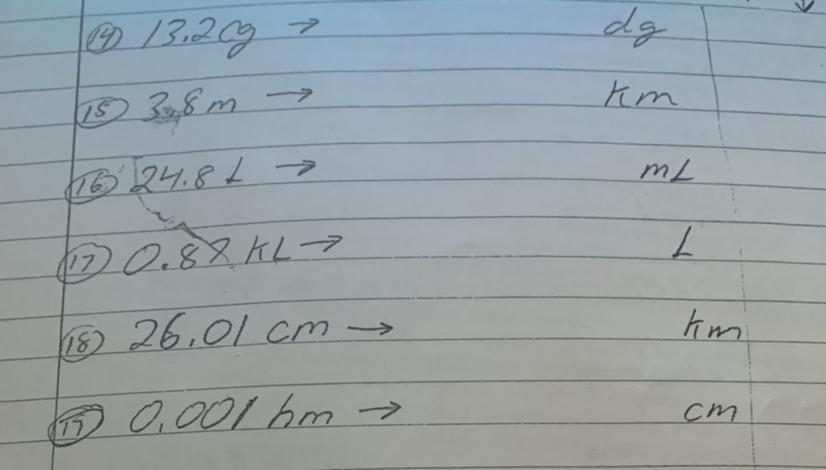 14) 13.2cg → dg
15) 3.8m → Km
16) 24.8 L → mL
17) 0.8 KL → L
18) 26.01 cm → Km
19) 0.001 hm → cm